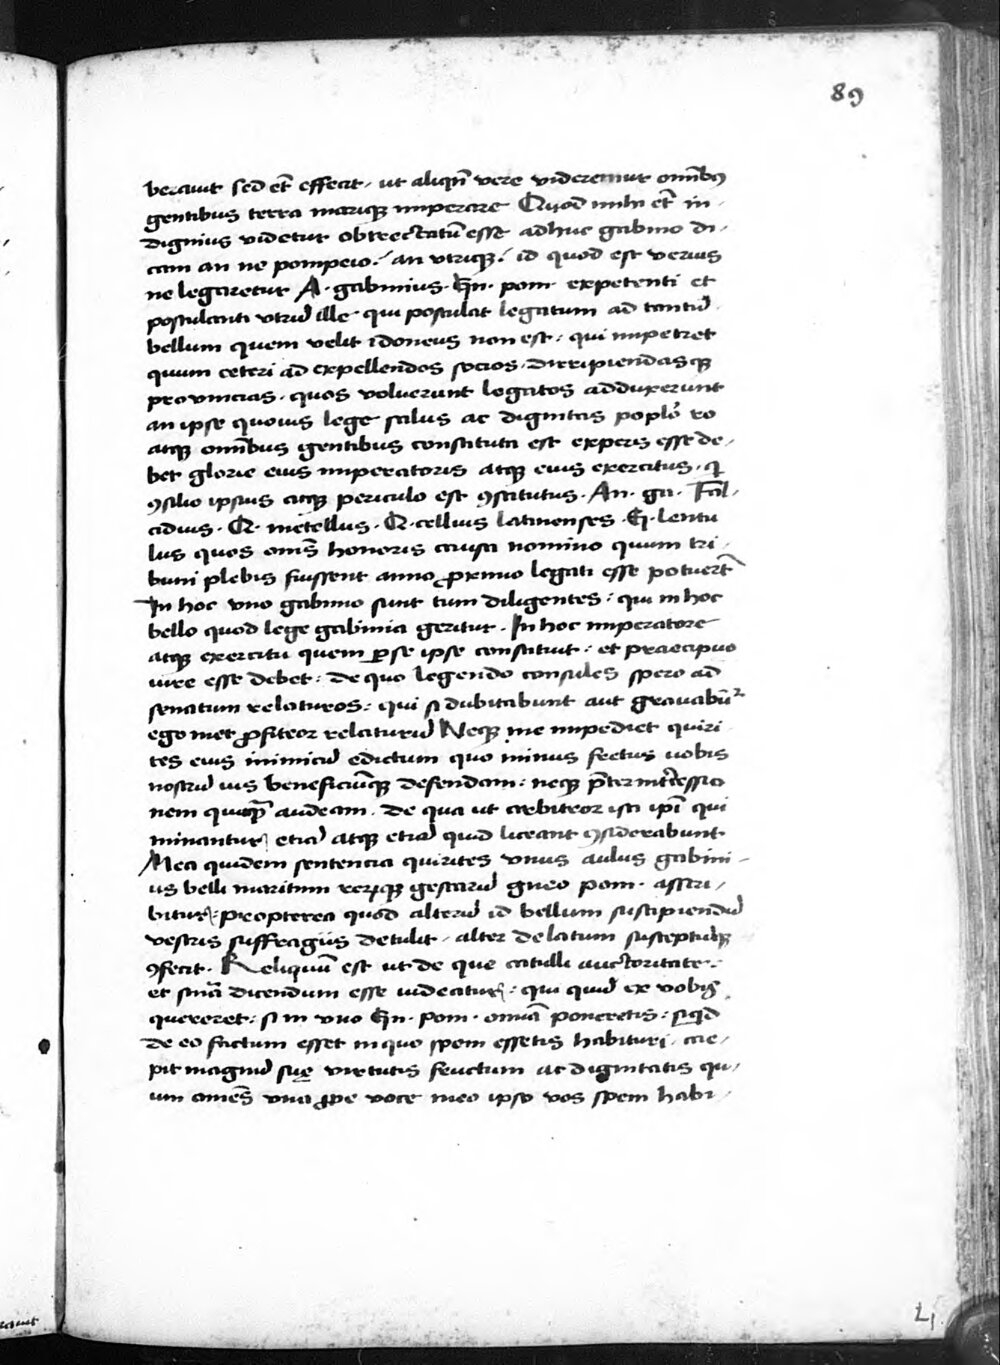 89
beraint sed et̄ effecit, ut aliqn̄ vere videremur omīb⁹
gentibus terra mariqꝫ imperare Quod mihi et̄ in-
dignius videtur obtrectatū esse adhuc gabinio di-
cam an ne pompeio? an vtriqꝫ? id quod est verius
ne legaretur A. gabinius. Gn. pom. expetenti et
postulanti vtrū ille qui postulat legatum ad tantū
bellum quem velit idoneus non est: qui impetret
quum ceteri ad expellendos socios. dirripiendasqꝫ
provincias. quos voluerunt legatos adduxerunt
an ipse quoius lege salus ac dignitas poplo᷒ ro
atqꝫ omībus gentibus constituta est expers esse de-
bet glorie eius imperatoris atqꝫ eius exercitus. q̄
ꝯsilio ipsius atqꝫ periculo est ꝯstitutus. An. ga. Fal-
cidius. Q. metellus. Q. cellius latinenses. G. lentu
lus quos om̄s honoris causa nomino quum tri-
buni plebis fuissent anno ꝓximo legati esse potuert̄
In hoc vno gabinio sunt tum diligentes: qui in hoc
bello quod lege gabinia geritur. In hoc imperatore
atqꝫ exercitu quem ꝑ se ipse constituit: et praecipuo
iure esse debet: de quo legendo consules spero ad
senatum relaturos: qui si dubitabunt aut gravabūr
ego met ꝓfiteor relaturū Neqꝫ me impediet quiri
tes eius inimicū edictum quo minus fretus uobis
nostrū ius beneficiūqꝫ defendam: neqꝫ p̄ter int̄cessio
nem quiqꝫ̄ audeam. de qua ut arbitror isti ip̄i qui
minantur etiā atqꝫ etiā quid liceant ꝯsiderabunt
Mea quidem sentencia quirites vnus aulus gabini-
us belli maritimi rerꝫqꝫ gestarū gneo pom. asscri-
bitur: propterea quod alterū id bellum suscipiendū
vestris suffragiis detulit, alter delatum susceptūqꝫ
ꝯfecit. Reliquū est ut de que catulli auctoritate:
et smā dicendum esse uideatur: qui quū ex vobis
quereret: si in vno Gn. pom. omīa poneretis: siqd
de eo factum esset in quo spem essetis habituri. cae-
pit magnū suę virtutis fructum ac dignitatis qu-
um om̄es vna ꝓpe voce meo ipso vos spem habi-
L1